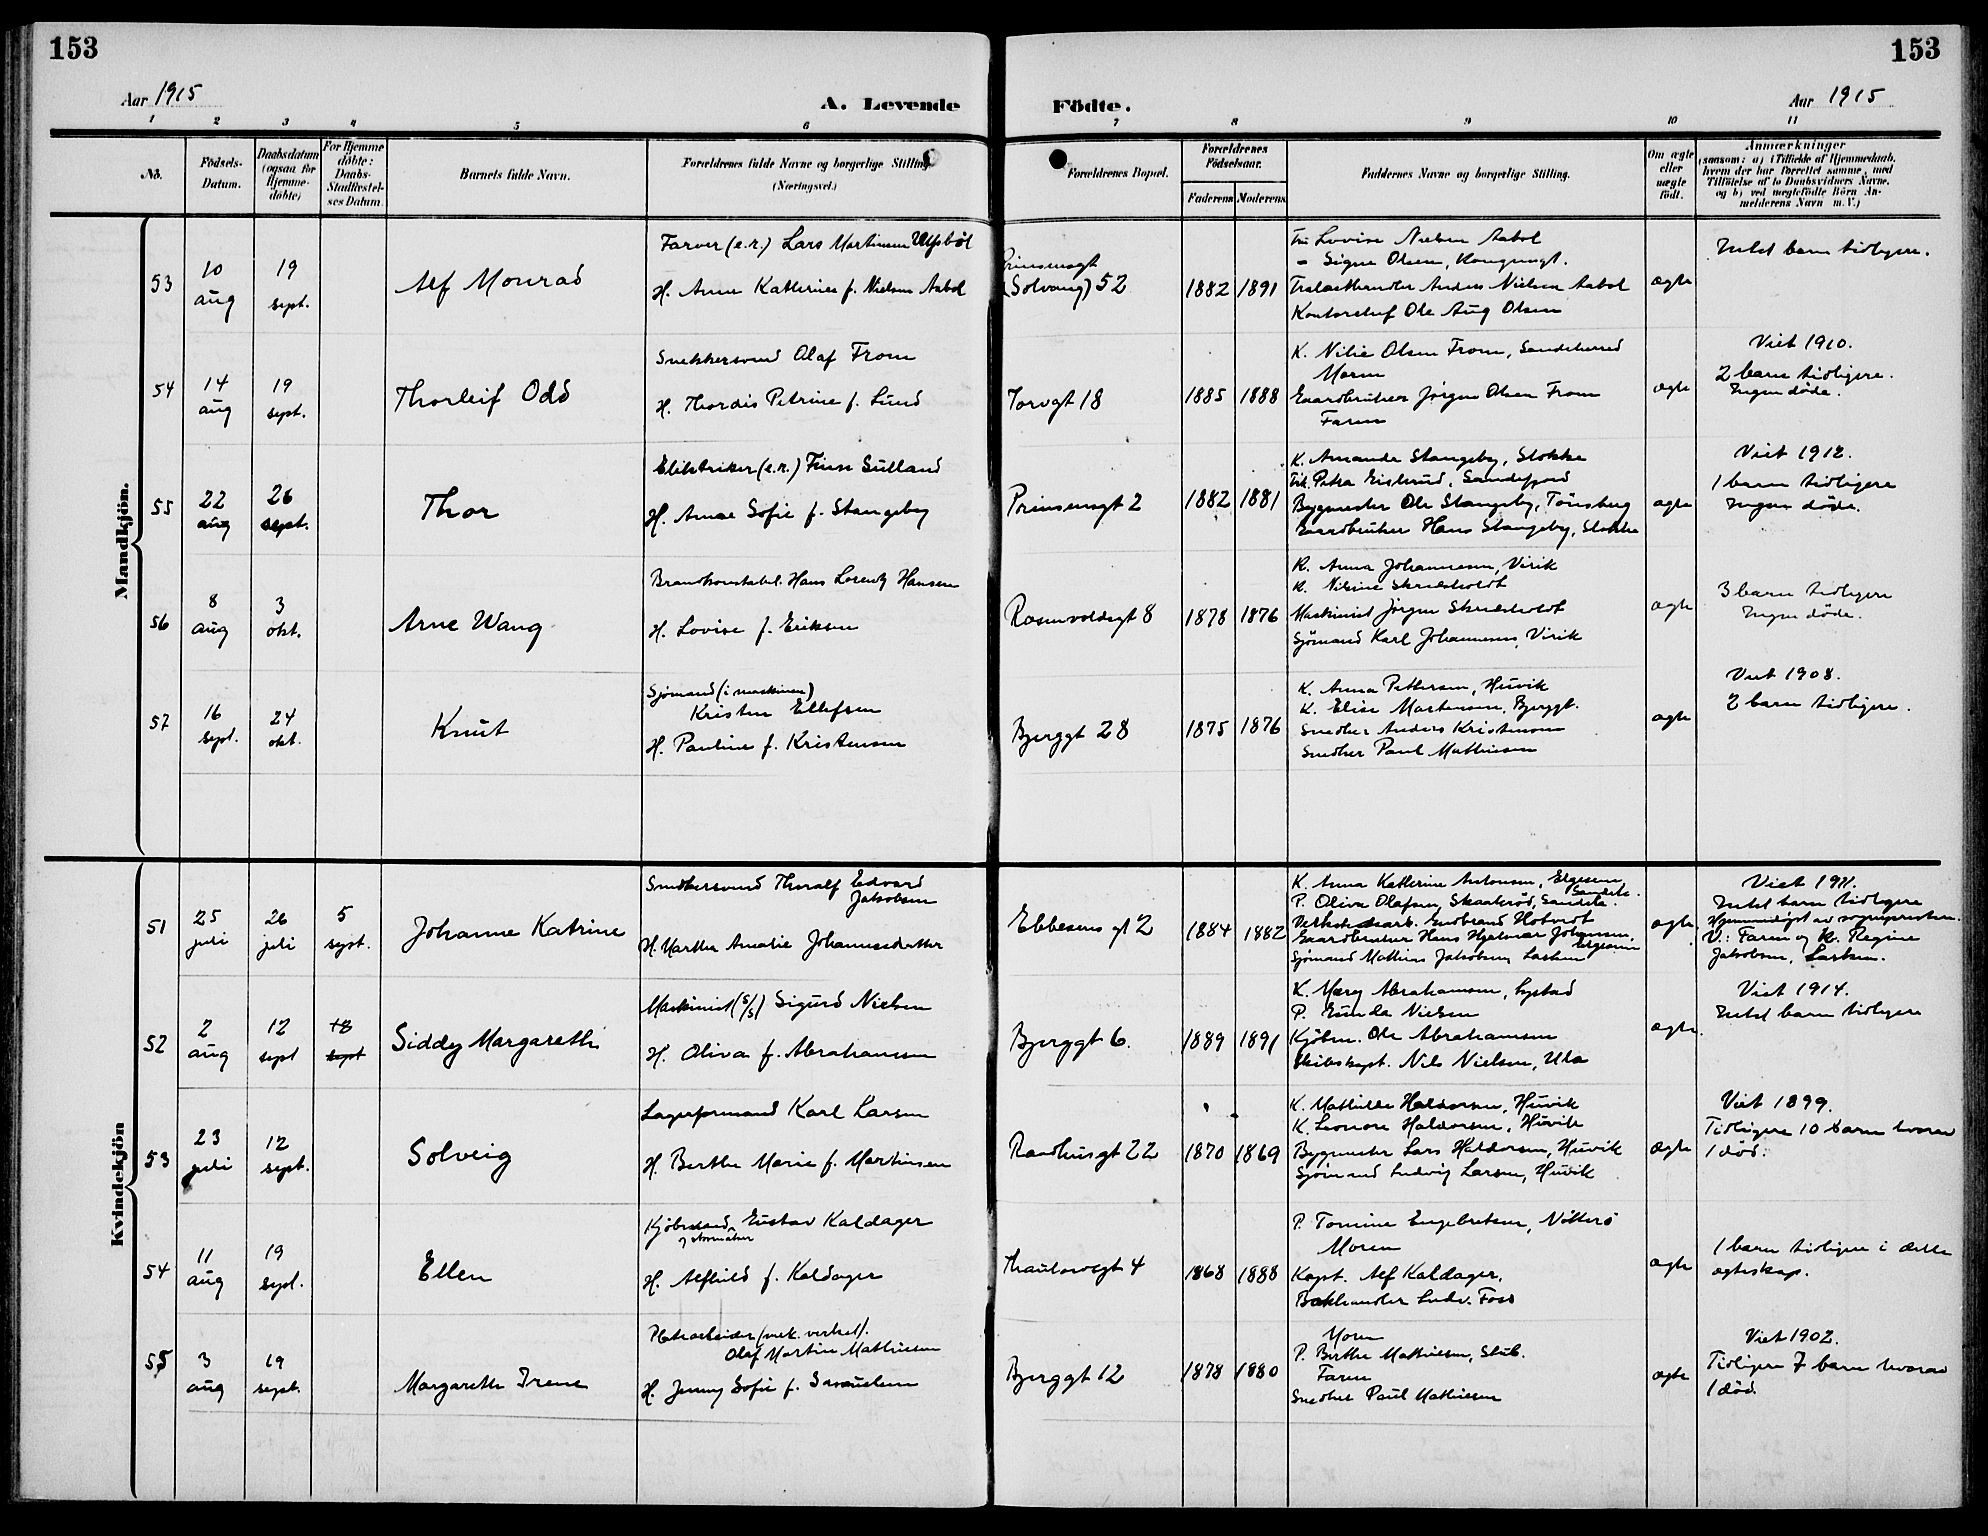 153
153
Aar 1915
A. Levende
Födte.
Aar 1915
1 2 3 4 5 6 7 8 9 10 11
No.
Födsels-Datum.
Daabsdatum (ogsaa for Hjemme-döbte)
For Hjemme döbte: Daabs-Stadfæstel-ses Datum.
Barnets fulde Navn.
Forældrenes fulde Navne og borgerlige Stilling
(Næringsvei.)
Forældrenes Bopæl.
Forældrenes Födselsaar.
Faderens Moderens
Faddernes Navne og borgerlige Stilling.
Om ægte eller uægte födt.
Anmærkninger
(saasom: a) i Tilfælde af Hjemmedaab,
hvem der har forrettet samme, med
Tilföielse af to Daabsvidners Navne,
og b) ved uægtefödte Börn An-
melderens Navn m. V.)
Mandkjön.
53
10 aug
19 sept.
Alf Monrad
Farver (e.r.) Lars Martinsen
H. Anne Kathrine f. Nielsen Aabol
Prinsensgt
(Solvang) 52
1882 1891
Frk Lovise Nielsen Aabol
- Signe Olsen, Kongensgt.
Trælasthandler Anders Nielsen Aabol
Kontorchef Ole Aug Olsen
ægte
Intet barn tidligere.
54
14 aug
19 sept.
Thorleif Odd
Snekkersvend Olaf From
H. Thordis Petrine f. Lund
Torvgt 18
1885 1888
K. Nilie Olsen From, Sandeherred
Moren
Gaardbruker Jørgen Olsen From
Faren
ægte
Viet 1910.
2 barn tidligere.
Ingen døde.
55
22 aug
26 sept.
Thor
Elektriker (e.r.) Finn Sulland
H. Anna Sofie f. Stangeby
Prinsensgt 2
1882 1881
K. Amanda Stangeby, Stokke
Frk. Petra, Sandefjord
Bygmester Ole Stangeby, Tönsberg
Gaardbruker Hans Stangeby, Stokke
ægte
Viet 1912.
1 barn tidligere
Ingen døde.
56
8 aug
3 okt.
Arne Wang
Brandkonstabel Hans Lorentz Hansen
H. Lovise f. Eriksen
Rosenvoldsgt 8
1878 1876
K. Anna Johannesen, Virik
K. Nilsine Skredsholdt
Maskinist Jörgen Skredsholdt
Sjømand Karl Johannesen, Virik
ægte
3 barn tidligere
Ingen døde.
57
16 sept.
24 okt.
Knut
Sjømand (i maskinen)
Kristen Ellefsen
H. Pauline f. Kristensen
Bjerggt 28
1875 1876
K. Anna Pettersen, Huvik
K. Elise Martinsen, Bjerggt.
Snedker Anders Kristensen
Snedker Paul Mathiesen
ægte
Viet 1908.
2 barn tidligere.
Kvindekjön
51
25 juli
26 juli
5 sept.
Johanne Katrine
Snedkersvend Thoralf Edvard
Jakobsen
H. Marthe Amalie Johannesdatter
Ebbesens gt 2
1884 1882
K. Anna Kathrine Antonsen,
P. Oliva Olafsen, Skaaterød, Sandeh.
Verkstedsarb. Gudbrand Hotvedt
Gaardbruker Hans Hjalmar Johansen,
Sjømand Mathias Jakobsen
ægte
Viet 1911.
Intet barn tidligere
Hjemmedøpt av sogneprester.
V.: Faren og K. Regine
Jakobsen,
52
2 aug
12 sept
18 sept
Siddy Margarethe
Maskinist (s/s) Sigurd Nielsen
H. Oliva f. Abrahamsen
Bjerggt 6.
1889 1891
K. Mary Abrahamsen,
P. Gunda Nielsen
Kjöbm. Ole Abrahamsen
Skibskapt. Nils Nielsen, Ula
ægte.
Viet 1914.
Intet barn tidligere
53
23 juli
12 sept.
Solveig
Lagerformand Karl Larsen
H. Berthe Marie f. Martinsen
Raadhusgt 22
1870 1869
K. Mathilde Haldorsen, Huvik
K. Leonore Haldorsen, Huvik
Bygmester Lars Haldorsen, Huvik
Sjømand Ludvig Larsen, Huvik
ægte
Viet 1899.
Tidligere 10 barn hvorav
1 død.
54
11 aug
19 sept.
Ellen
Kjöbmand Gustav Kaldager
H. Alfhild f. Kaldager
Thaulowsgt 4
1868 1888
P. Tomine Engebretsen, Nötterö
Moren
Kapt. Alf Kaldager,
Bokhandler Ludv. Foss
ægte
1 barn tidligere i dette
ægteskap.
55
3 aug
19 sept.
Margarethe Irene
Platearbeider (mek. verkst).
Olaf Martin Mathiesen
H. Jenny Sofie f. Samuelsen
Bjerggt 12
1878 1880
Moren
P. Berthe Mathiesen, Stub.
Faren
Snedker Paul Mathiesen
ægte
Viet 1902.
Tidligere 7 barn hvorav
1 død.